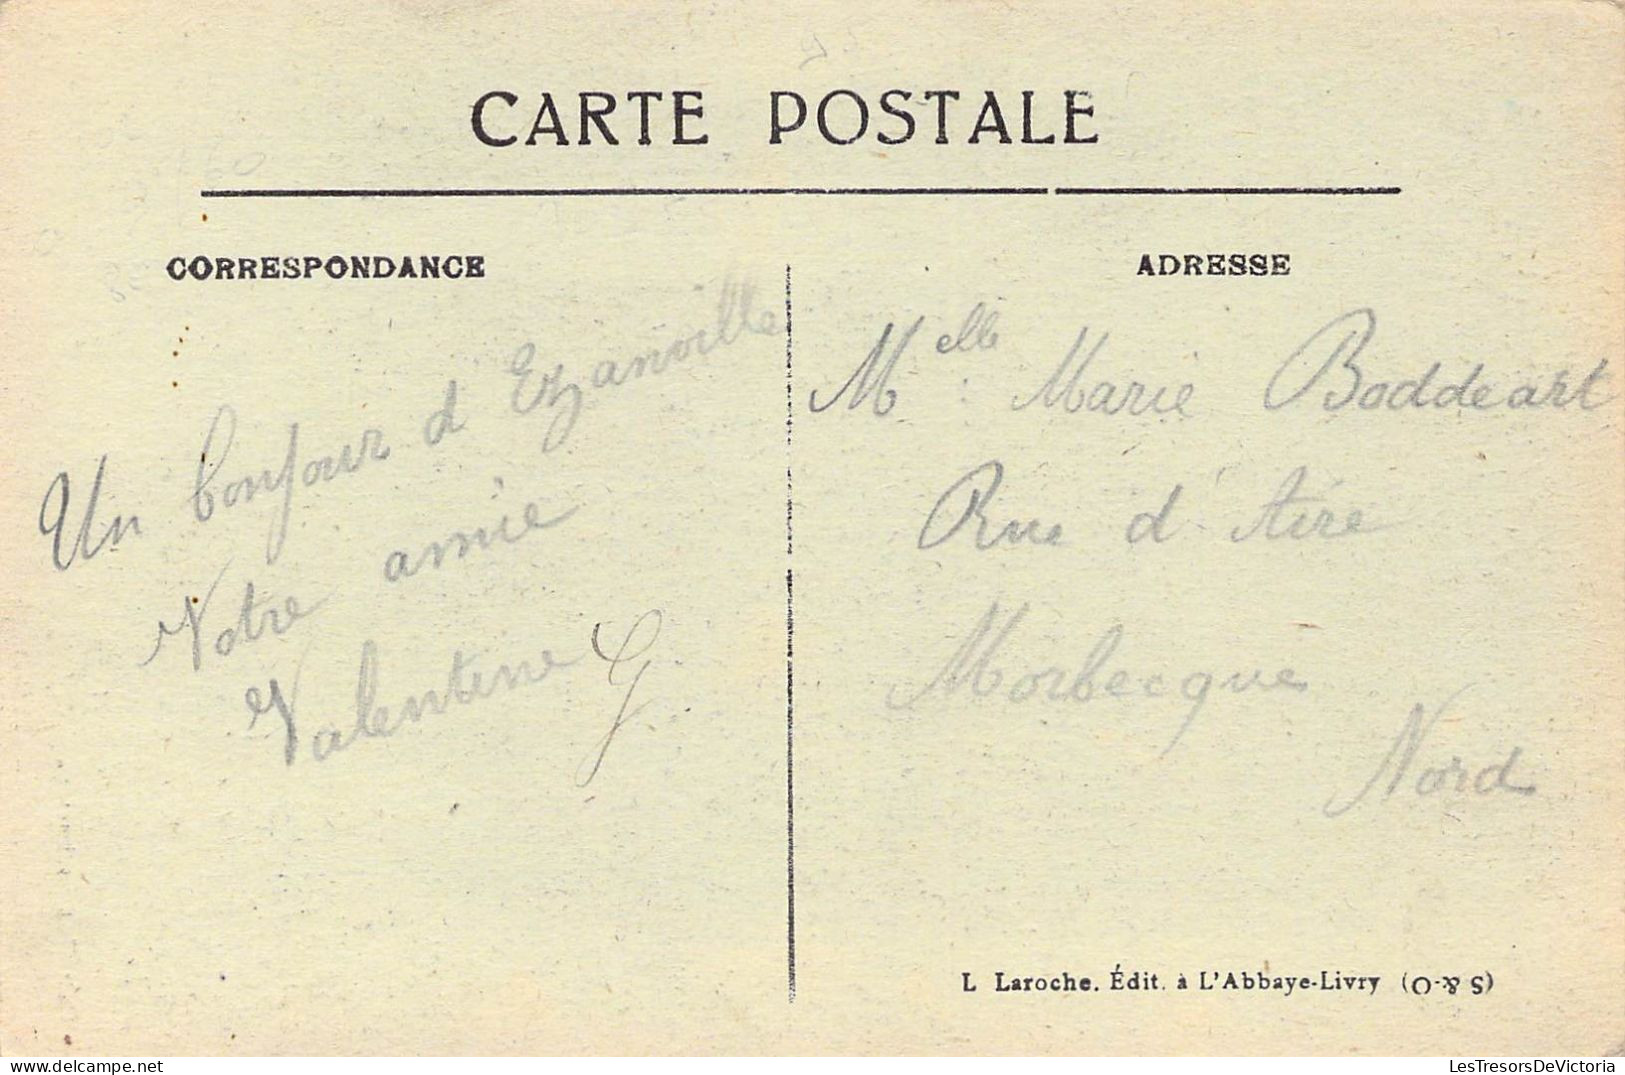 CARTE POSTALE
CORRESPONDANCE
Un bonjour d Ezanville
Votre amie
Valentine G
ADRESSE
Melle Marie Boddeart
Rue d'Aire
Morbecque
Nord
L Laroche. Édit. à L'Abbaye-Livry (O-&S)
LesTresorsDeVictoria